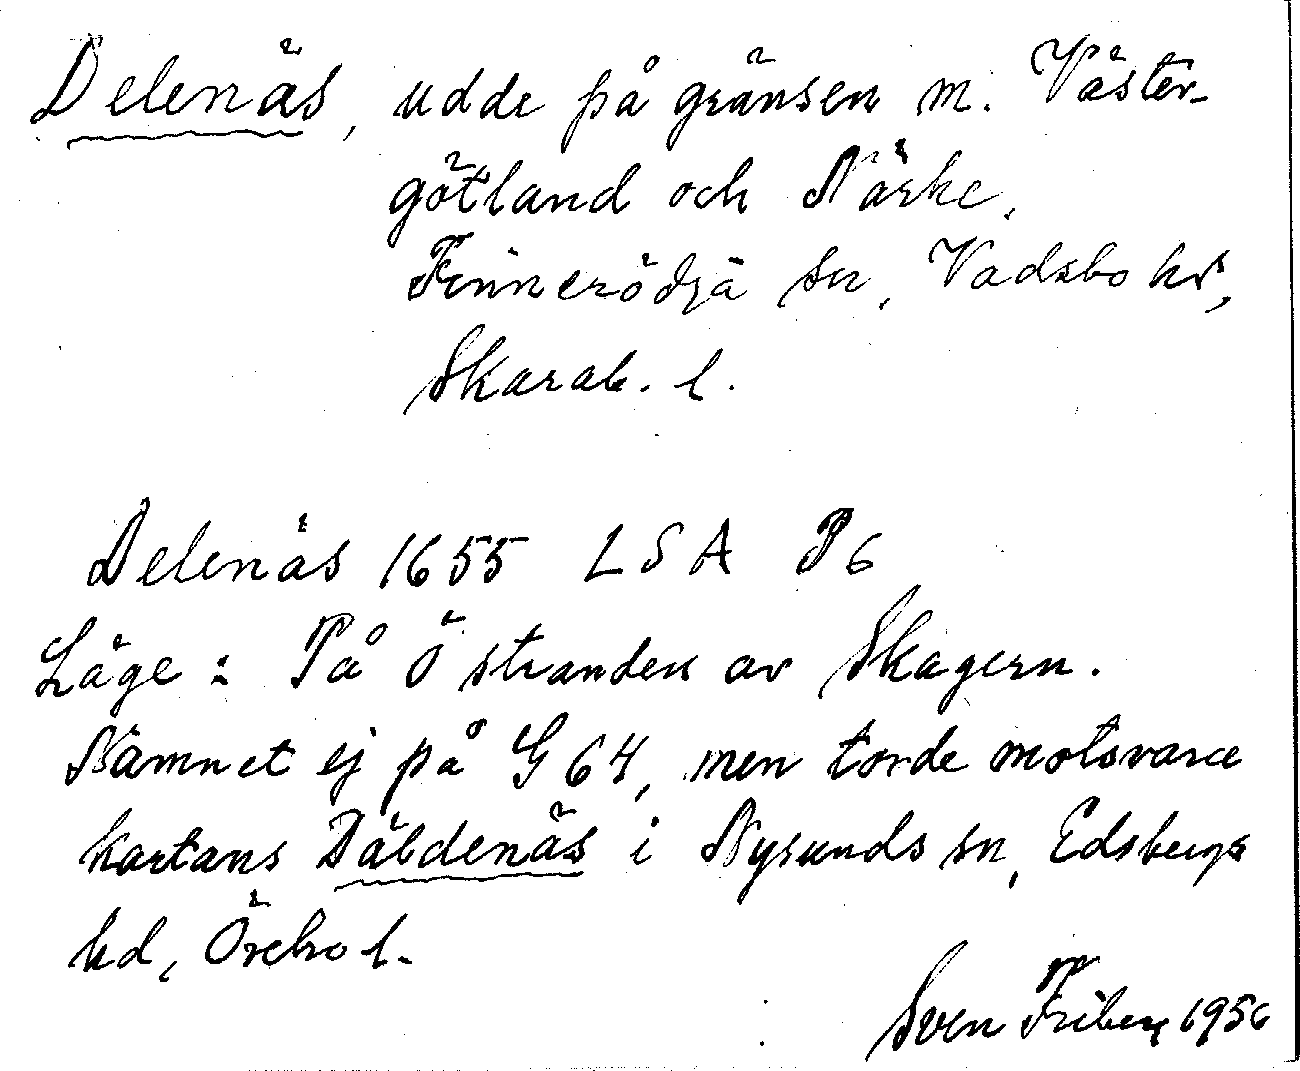 Delenäs, udde på gränsen m. Väster-
götland och Närke,
Finnerödja sn, Vadsbo hd,
Skarab. l.
Delenäs 1655 LSA P6
Läge: På Ö stranden av Skagern.
Namnet ej på G 64, men torde motsvara
kartans Däldenäs i Nysunds sn, Edsbergs
hd, Örebro l.
Sven Friberg 1956